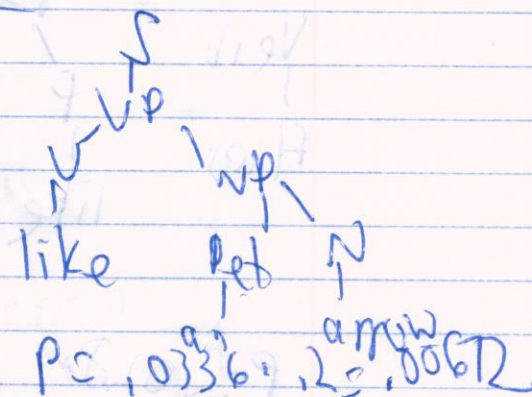 S
VP
V NP
like Det N
an arrow
P = .0336 . .2 = .00672